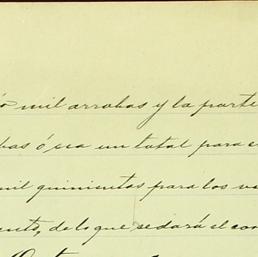 mil arrobas y la parte
bas ó sea un total para
mil quinientos para los
de lo que se dará el con